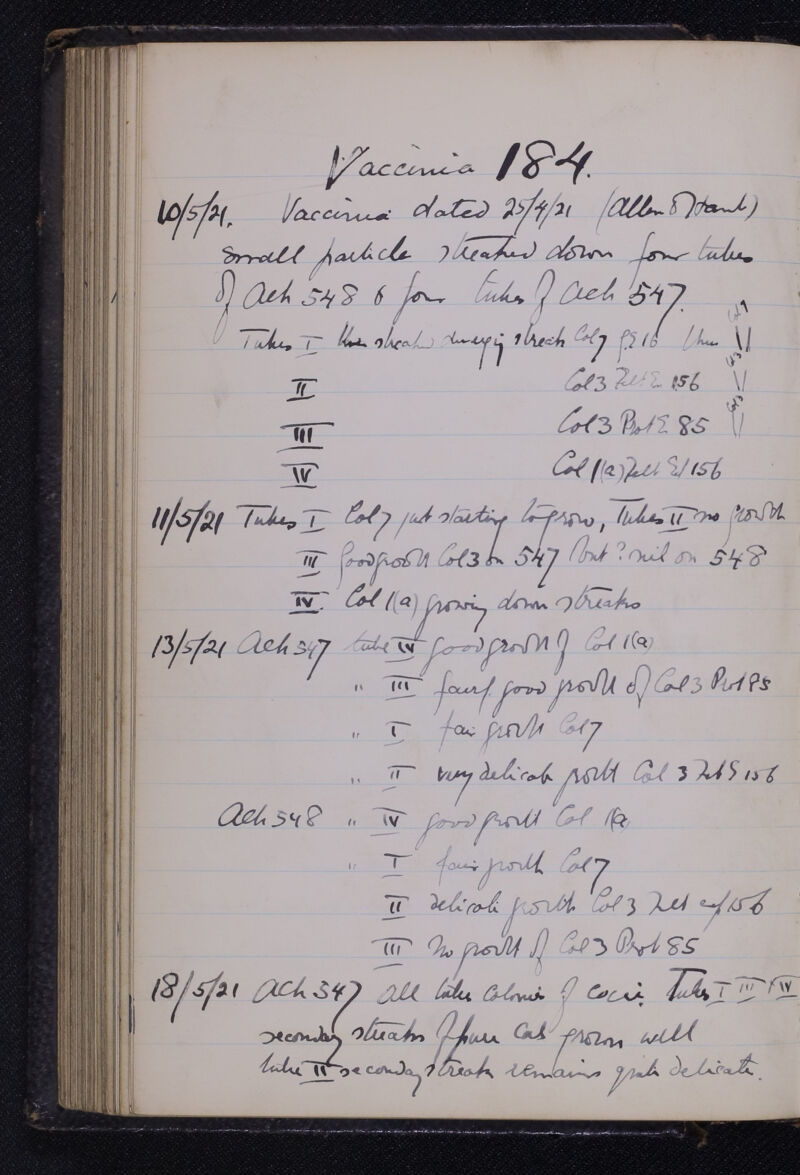 Vaccinia 184.
10/5/21. Vaccinia dated 25/4/21 (Allen & Hanb)
small particle streaked down four tubes
of Ach 548 & four tubes of Ach 547.
Tubes I streaks diverging streak Col 7 16 thus
II Col 3 156
III Col 3 Prot E 85
IV Col 1(a) 156
11/5/21 Tubes I Col 7 just starting to grow, Tubes II no growth
III good growth Col 3 on 547 but ? nil on 548
IV. Col 1(a) growing down streaks
13/5/21 Ach 547 tube IV good growth of Col 1(a)
" III fairly good growth of Col 3 Prot 85
" I fair growth Col 7
" II very delicate growth Col 3 156
Ach 548 " IV good growth Col 1(a)
" I fair growth Col 7
II delicate growth Col 3 156
III No growth of Col 3 Prot 85
18/5/21 Ach 547 all tubes colonies of cocci. Tubes I III & IV
secondary streaks of pure Cols grown well
tube II secondary streak remains quite delicate.